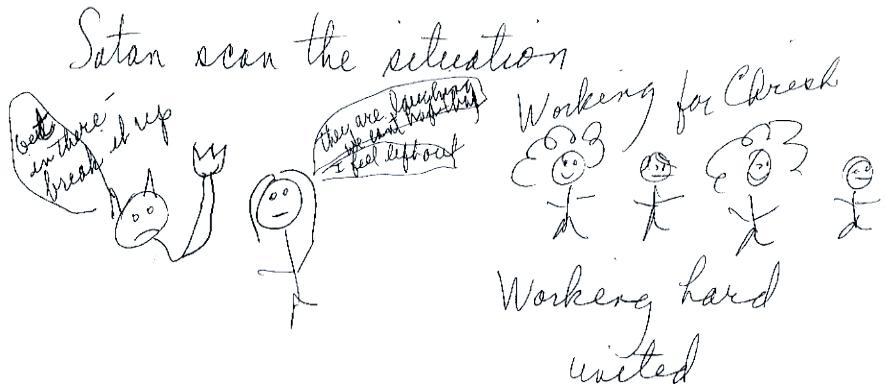 Satan scan the situation
Get
in there
break it up
they are laughing
we can't
I feel left out
Working for Christ
Working hard
united